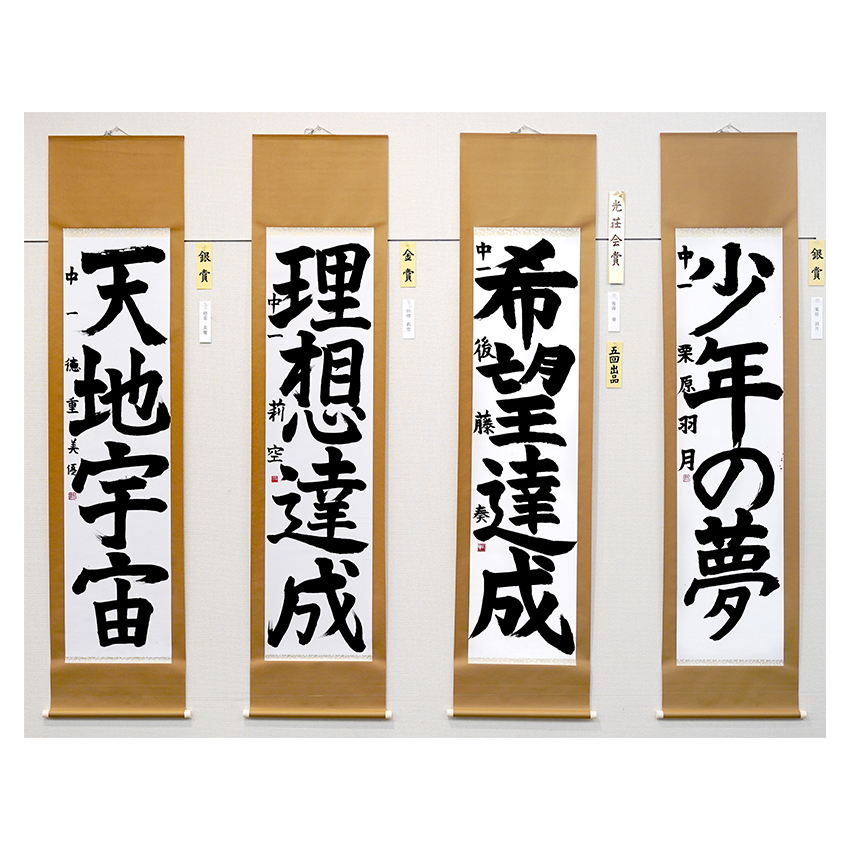 少年の夢
中一 栗原羽月
銀賞
希望達成
中一 後藤奏
光荘会賞
五回出品
理想達成
中一 莉空
金賞
天地宇宙
中一 徳重美優
銀賞